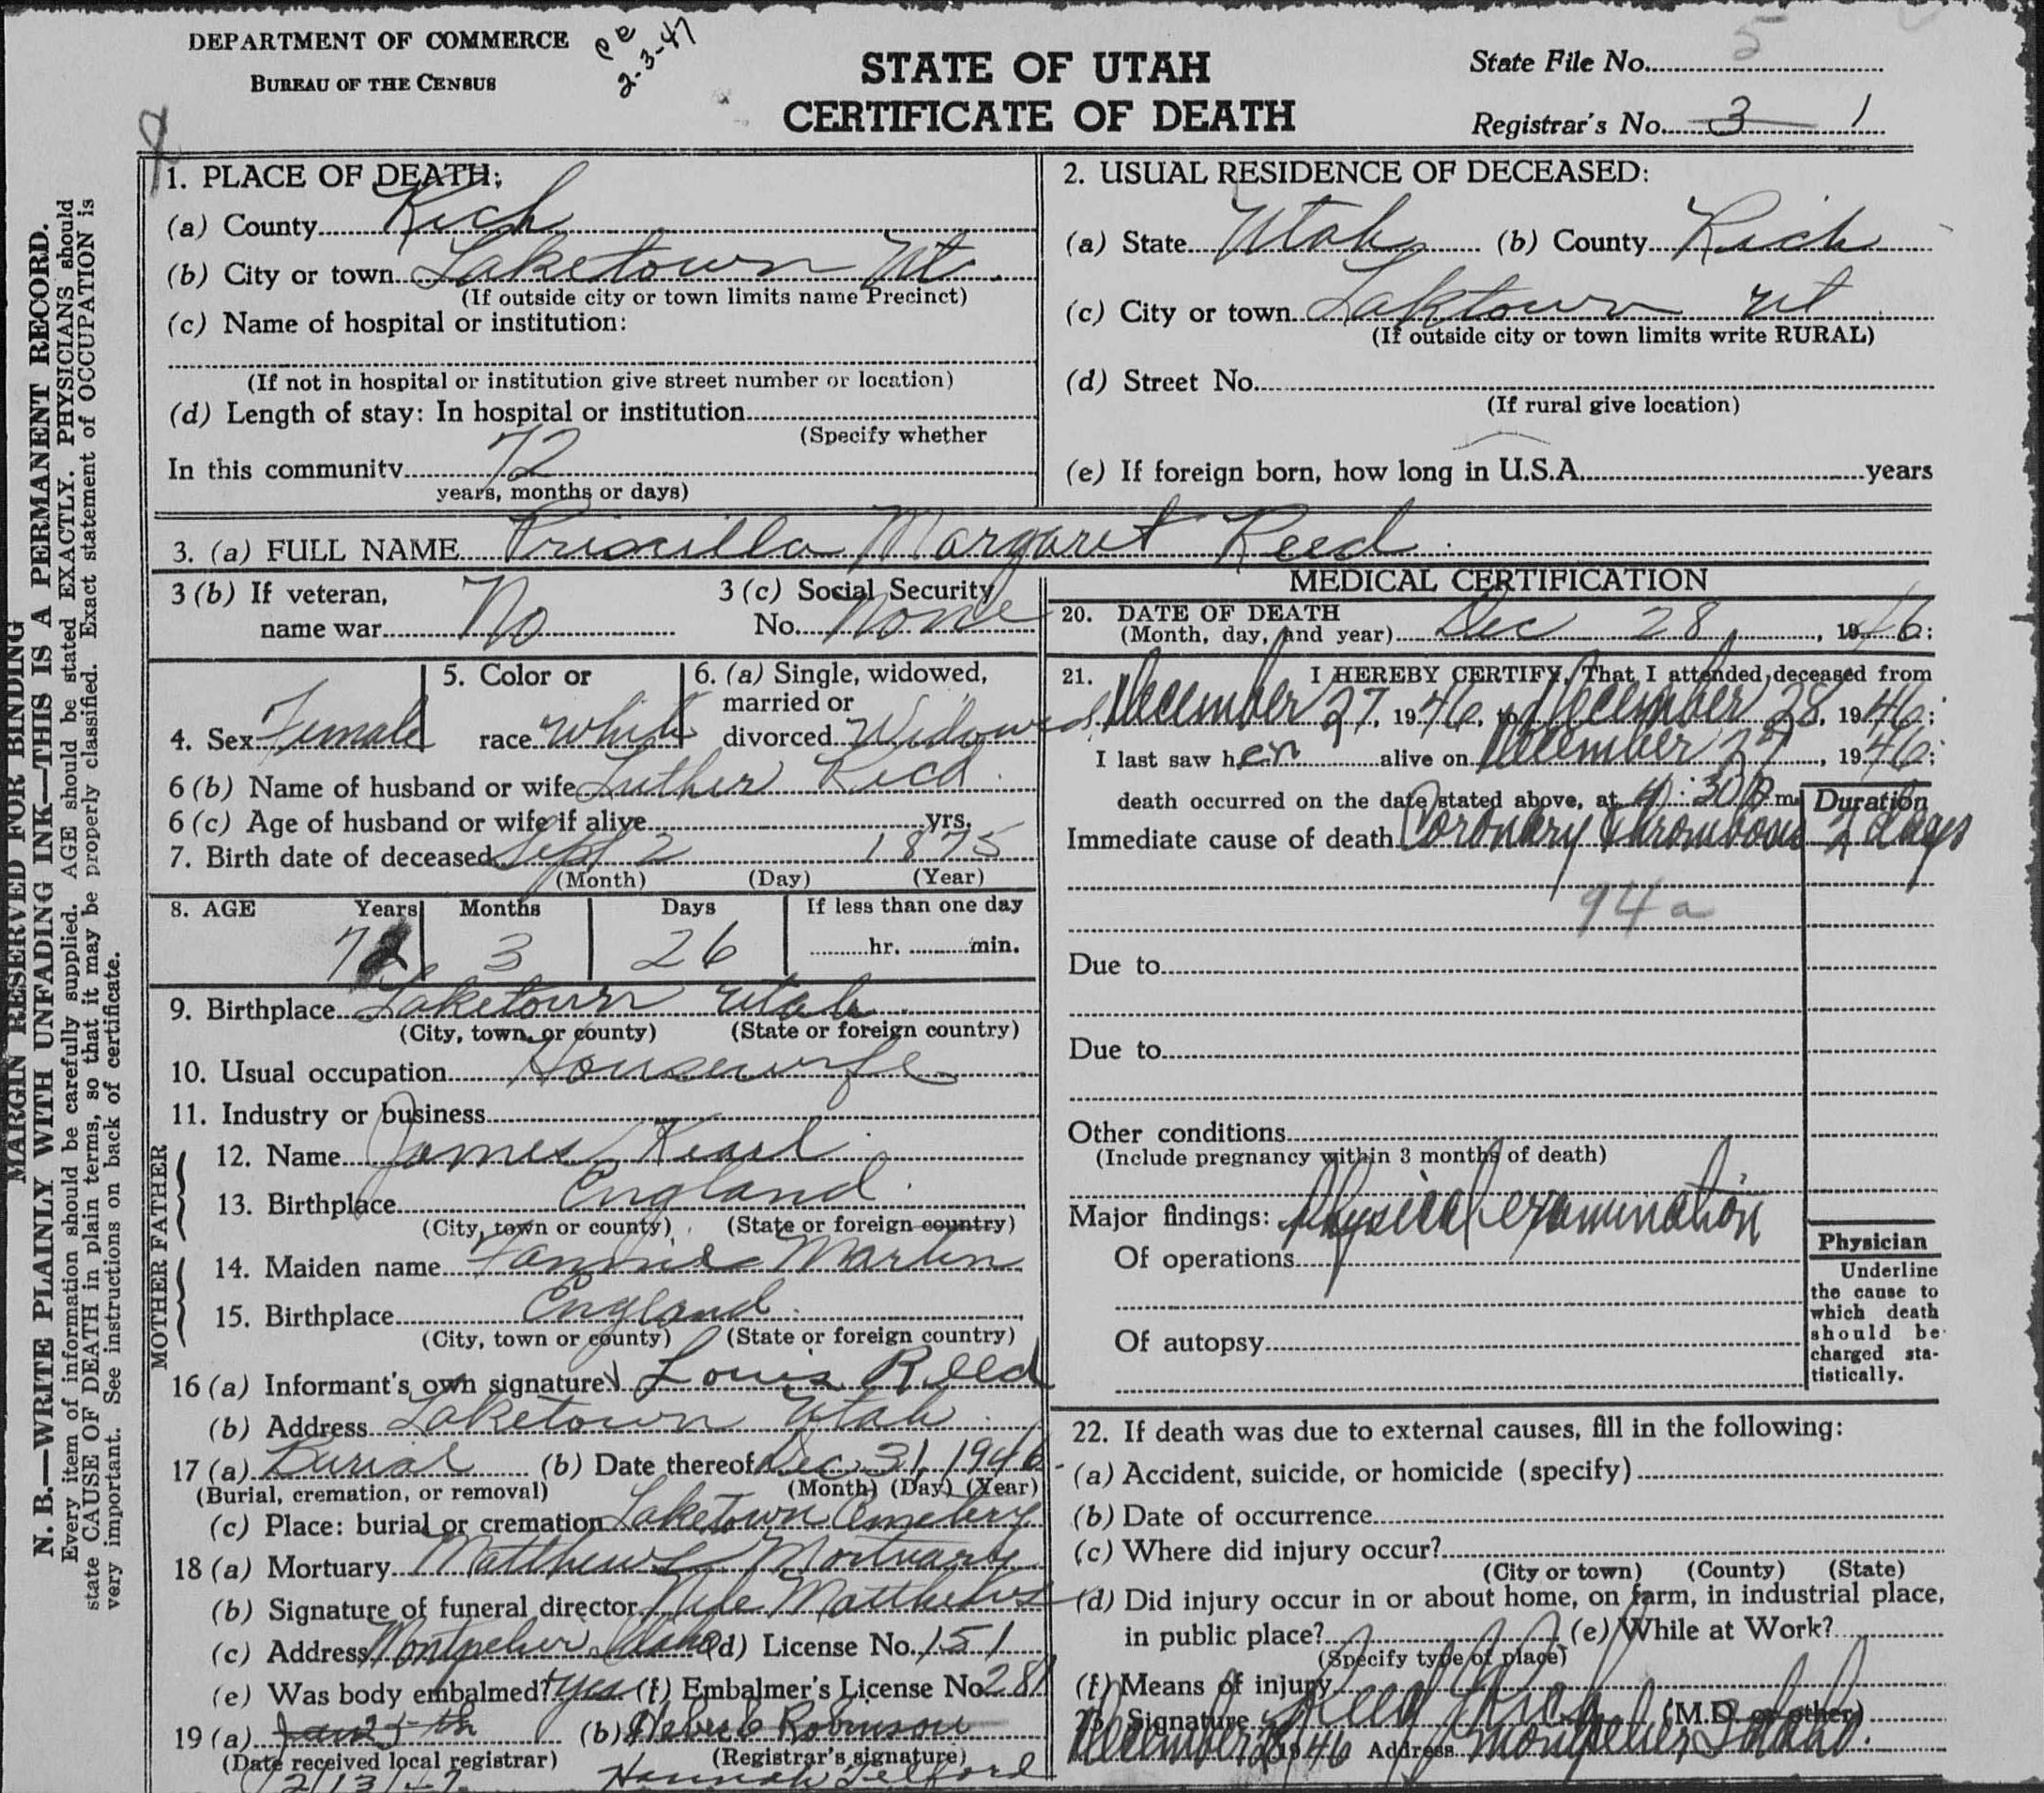 DEPARTMENT OF COMMERCE
BUREAU OF THE CENSUS
2-3-47
STATE OF UTAH
CERTIFICATE OF DEATH
State File No. 5
Registrar's No. 3 1
MARGIN RESERVED FOR BINDING
N. B.—WRITE PLAINLY WITH UNFADING INK—THIS IS A PERMANENT RECORD.
Every item of information should be carefully supplied. AGE should be stated EXACTLY. PHYSICIANS should
state CAUSE OF DEATH in plain terms, so that it may be properly classified. Exact statement of OCCUPATION is
very important. See instructions on back of certificate.
1. PLACE OF DEATH:
(a) County Rich
(b) City or town Laketown Ut.
(If outside city or town limits name Precinct)
(c) Name of hospital or institution:
(If not in hospital or institution give street number or location)
(d) Length of stay: In hospital or institution
(Specify whether
In this community 72
years, months or days)
2. USUAL RESIDENCE OF DECEASED:
(a) State Utah (b) County Rich
(c) City or town Laktown Ut
(If outside city or town limits write RURAL)
(d) Street No.
(If rural give location)
(e) If foreign born, how long in U.S.A. years
3. (a) FULL NAME Priscilla Margaret Reed
3 (b) If veteran,
name war No
3 (c) Social Security
No. None
4. Sex Female
5. Color or
race White
6. (a) Single, widowed,
married or
divorced Widowed
6 (b) Name of husband or wife Luther Reed
6 (c) Age of husband or wife if alive yrs.
7. Birth date of deceased Sept 2 1875
(Month) (Day) (Year)
8. AGE Years Months Days If less than one day
3 26 hr. min.
9. Birthplace Laketown Utah
(City, town, or county) (State or foreign country)
10. Usual occupation Housewife
11. Industry or business
FATHER
12. Name James Kearl
13. Birthplace England
(City, town or county) (State or foreign country)
MOTHER
14. Maiden name Martin
15. Birthplace England
(City, town or county) (State or foreign country)
16 (a) Informant's own signature Louis Reed
(b) Address Laketown Utah
17 (a) Burial (b) Date thereof Dec 31, 1946
(Burial, cremation, or removal) (Month) (Day) (Year)
(c) Place: burial or cremation Laketown Cemetery
18 (a) Mortuary Matthews Mortuary
(b) Signature of funeral director Matthews
(c) Address Montpelier Idaho (d) License No. 151
(e) Was body embalmed? Yes (f) Embalmer's License No. 281
19 (a) Jan 5th (b) Robinson
(Date received local registrar) (Registrar's signature)
Hannah Telford
MEDICAL CERTIFICATION
20. DATE OF DEATH
(Month, day, and year) Dec 28, 1946:
21. I HEREBY CERTIFY, That I attended deceased from
December 27, 1946, to December 28, 1946;
I last saw her alive on December 27, 1946;
death occurred on the date stated above, at 4:30 P m.
Duration
Immediate cause of death Coronary Thrombosis 2 days
94a
Due to
Due to
Other conditions
(Include pregnancy within 3 months of death)
Major findings: Physical examination
Of operations
Of autopsy
Physician
Underline
the cause to
which death
should be
charged sta-
tistically.
22. If death was due to external causes, fill in the following:
(a) Accident, suicide, or homicide (specify)
(b) Date of occurrence
(c) Where did injury occur?
(City or town) (County) (State)
(d) Did injury occur in or about home, on farm, in industrial place,
in public place? (e) While at Work?
(Specify type of place)
(f) Means of injury
23. Signature (M.D. or other)
December 1946 Address Montpelier, Idaho.